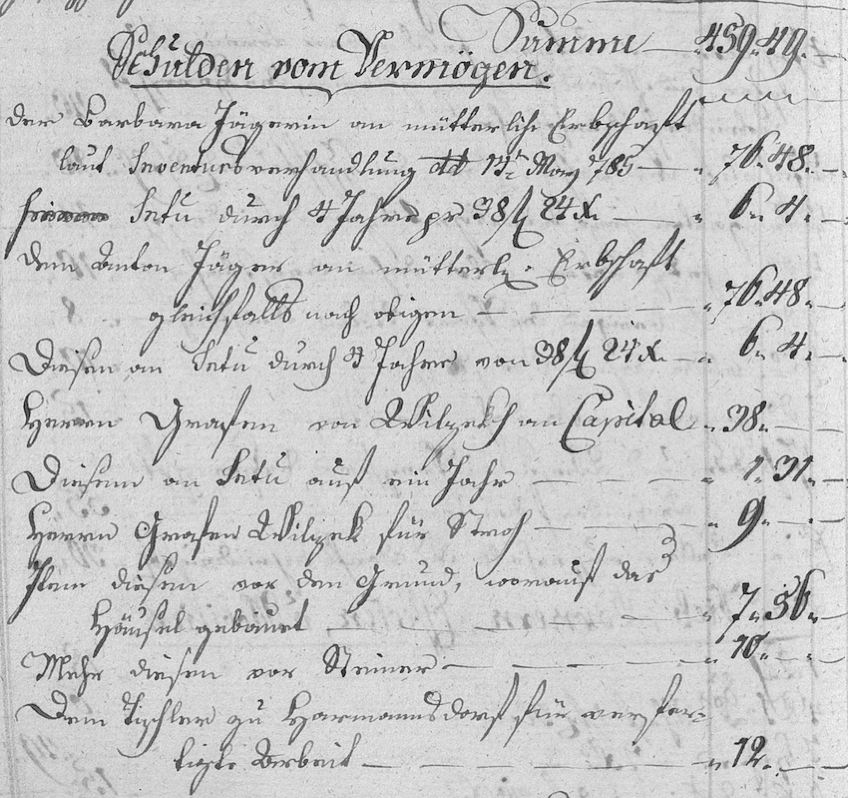 Summe — 459. 49.
Schulden vom Vermögen.
Der Barbara Jägerin an mütterlich Erbschaft
laut Inventursverhandlung dto 13tn May 785 — 76. 48. —
Intu durch 4 Jahre pr 38 f 24 x. — 6. 4. —
Dem Anton Jäger an mütterln. Erbschaft
gleichfalls nach obigen — 76. 48. —
Diesen an Intu durch 4 Jahre von 38 f 24 x. — 6. 4. —
Herrn Grafen von Wilzekh an Capital — 38. —
Diesem an Intu auf ein Jahr — 1. 31. —
Herrn Grafen Wilzek für Stroh — 9. —
Item diesen vor den Grund, worauf das
Häusel gebauet — 7. 56. —
Mehr diesen vor Steiner — 10. —
Dem Tischler zu Harmannsdorf für verfer-
tigte Arbeit — 12. —